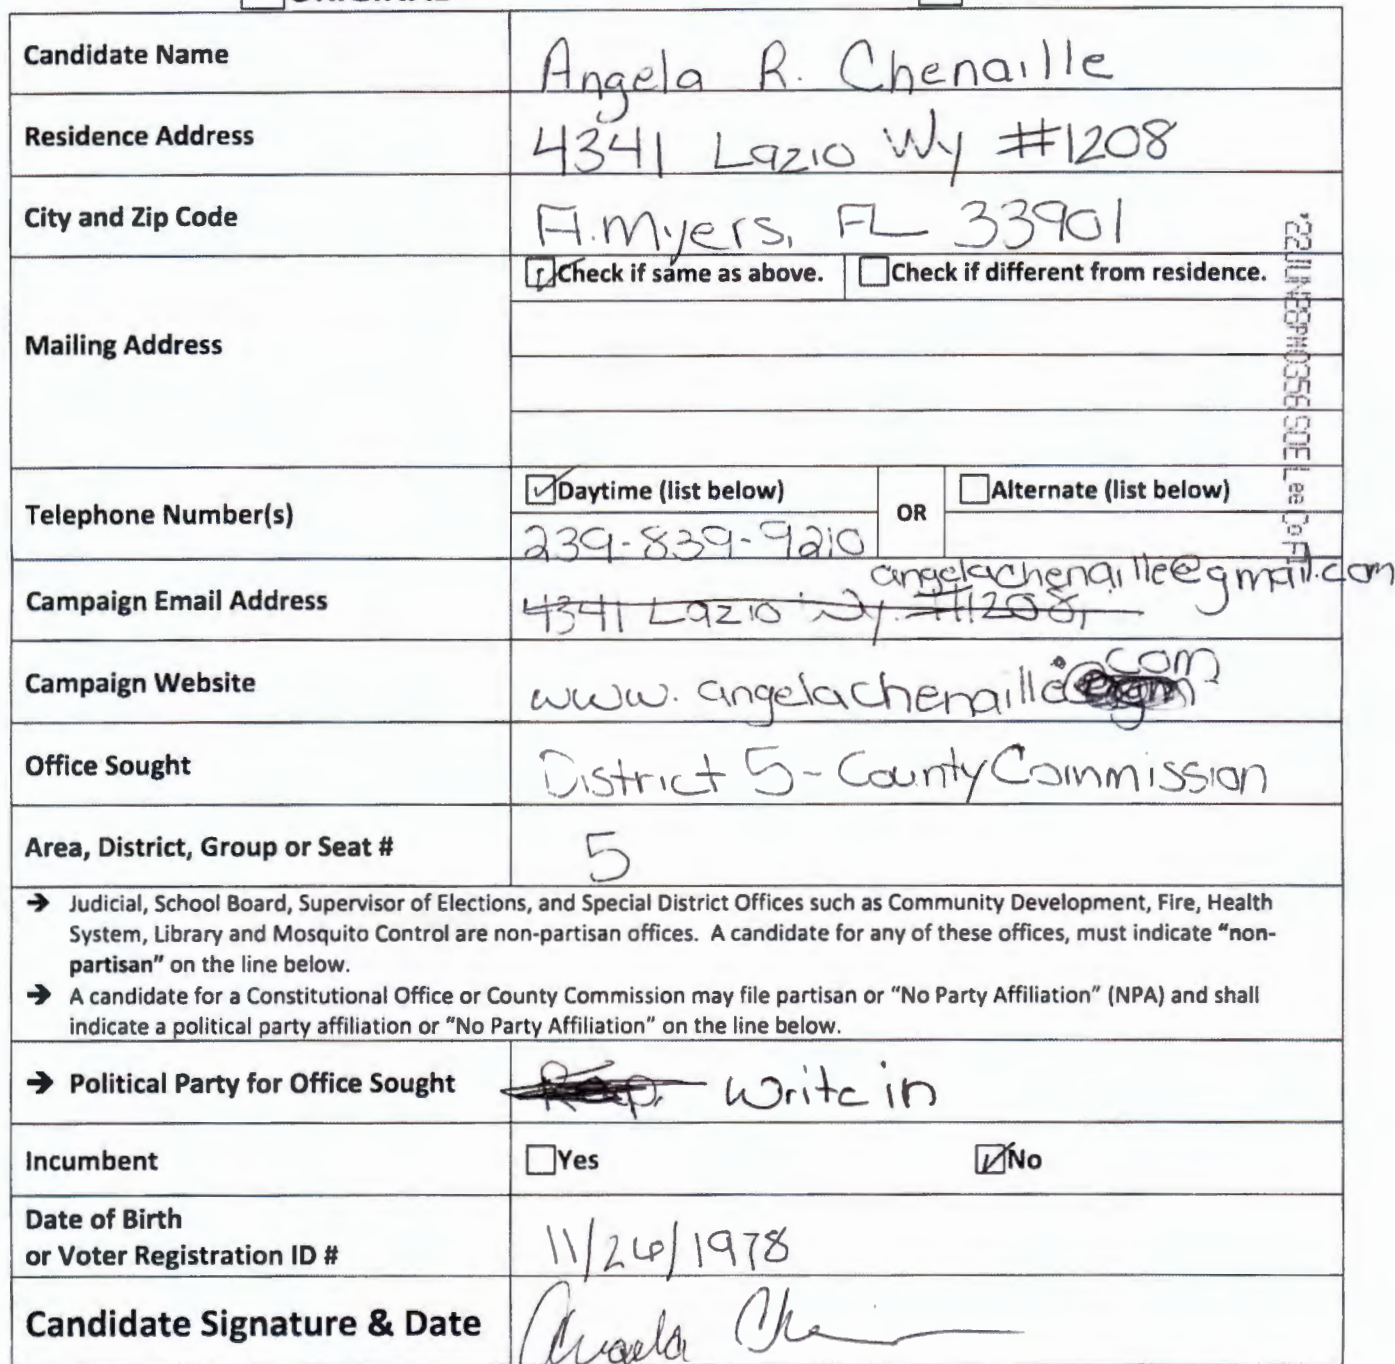 Candidate Name
Angela R. Chenaille
Residence Address
4341 Lazio Wy #1208
City and Zip Code
Ft. Myers, FL 33901
Mailing Address
Check if same as above.
Check if different from residence.
Telephone Number(s)
Daytime (list below)
OR
Alternate (list below)
239-839-9210
Campaign Email Address
angelachenaille@gmail.com
4341 Lazio Wy. #1208,
Campaign Website
www.angelachenaille.com
Office Sought
District 5 - County Commission
Area, District, Group or Seat #
5
→ Judicial, School Board, Supervisor of Elections, and Special District Offices such as Community Development, Fire, Health
System, Library and Mosquito Control are non-partisan offices. A candidate for any of these offices, must indicate "non-
partisan" on the line below.
→ A candidate for a Constitutional Office or County Commission may file partisan or "No Party Affiliation" (NPA) and shall
indicate a political party affiliation or "No Party Affiliation" on the line below.
→ Political Party for Office Sought
Rep. Write in
Incumbent
Yes
No
Date of Birth
or Voter Registration ID #
11/26/1978
Candidate Signature & Date
Angela Che
'22JUN08PM0356 SOE Lee Co Fl